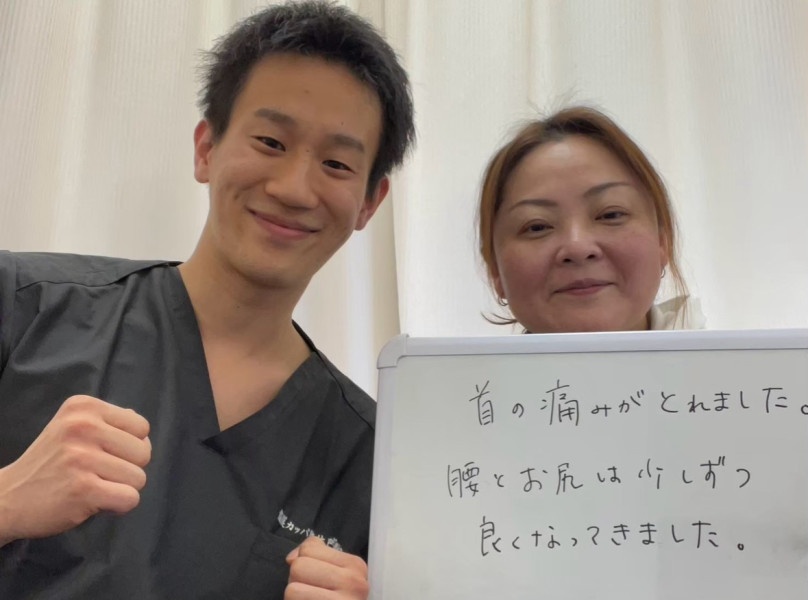 首の痛みがとれました。
腰とお尻は少しずつ
良くなってきました。
カッパ